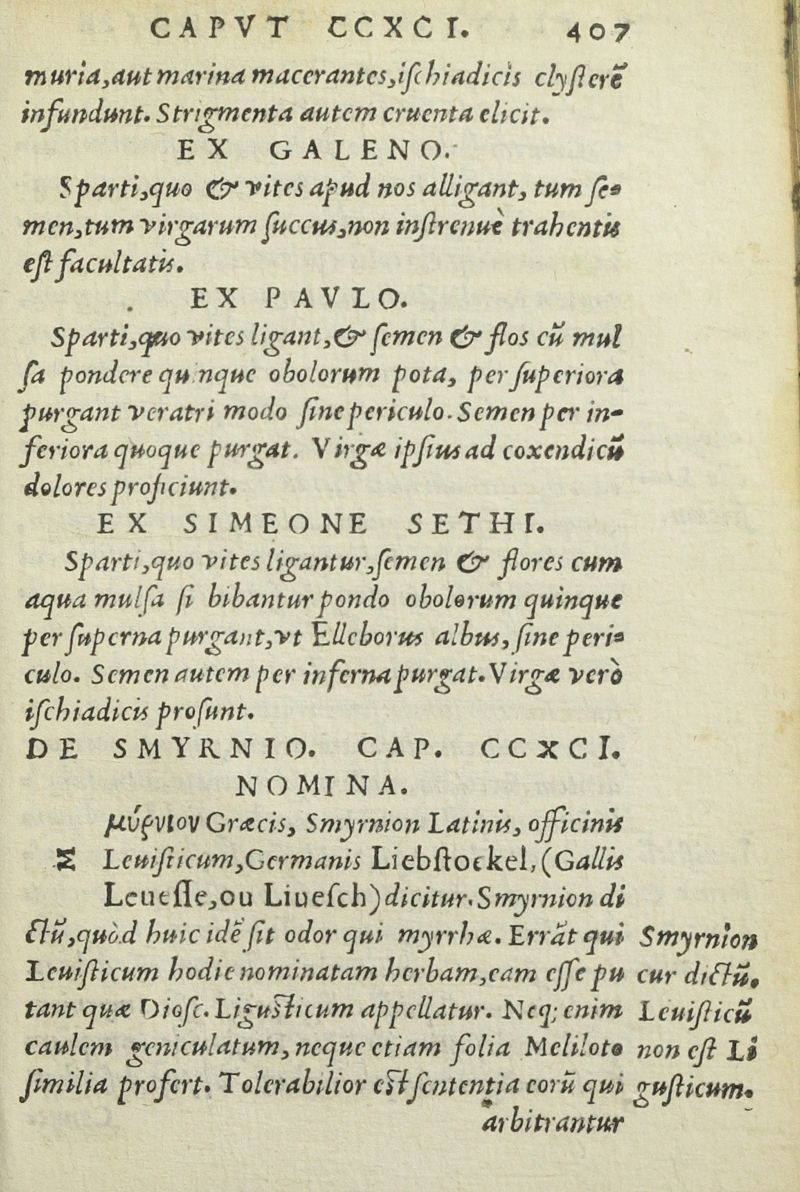 CAPVT CCXCI. 407
muria, aut marina macerantes, iſchiadicis clyſterē
infundunt. Strigmenta autem cruenta elicit.
EX GALENO.
Sparti, quo & vites apud nos alligant, tum ſe-
men, tum virgarum ſuccus, non inſtrenuè trahentis
eſt facultatis.
EX PAVLO.
Sparti, quo vites ligant, & ſemen & flos cū mul
ſa pondere qu nque obolorum pota, per ſuperiora
purgant veratri modo ſine periculo. Semen per in-
feriora quoque purgat. Virgæ ipſius ad coxendicū
dolores proficiunt.
EX SIMEONE SETHI.
Sparti, quo vites ligantur, ſemen & flores cum
aqua mulſa ſi bibantur pondo obolorum quinque
per ſuperna purgant, vt Elleborus albus, ſine peri-
culo. Semen autem per inferna purgat. Virgæ verò
iſchiadicis proſunt.
DE SMYRNIO. CAP. CCXCI.
NOMINA.
Σμύρνιον Græcis, Smyrnion Latinis, officinis
Leuiſticum, Germanis Liebſtockel, (Gallis
Leueſſe, ou Liueſch) dicitur. Smyrnion di
ctū, quòd huic idē ſit odor qui myrrhæ. Errāt qui
Leuiſticum hodie nominatam herbam, eam eſſe pu
tant quæ Dioſc. Liguſticum appellatur. Neq; enim
caulem geniculatum, neque etiam folia Meliloto
ſimilia profert. Tolerabilior eſt ſententia eorū qui
arbitrantur
Smyrnion
cur dictū.
Leuiſticū
non eſt Li
guſticum.